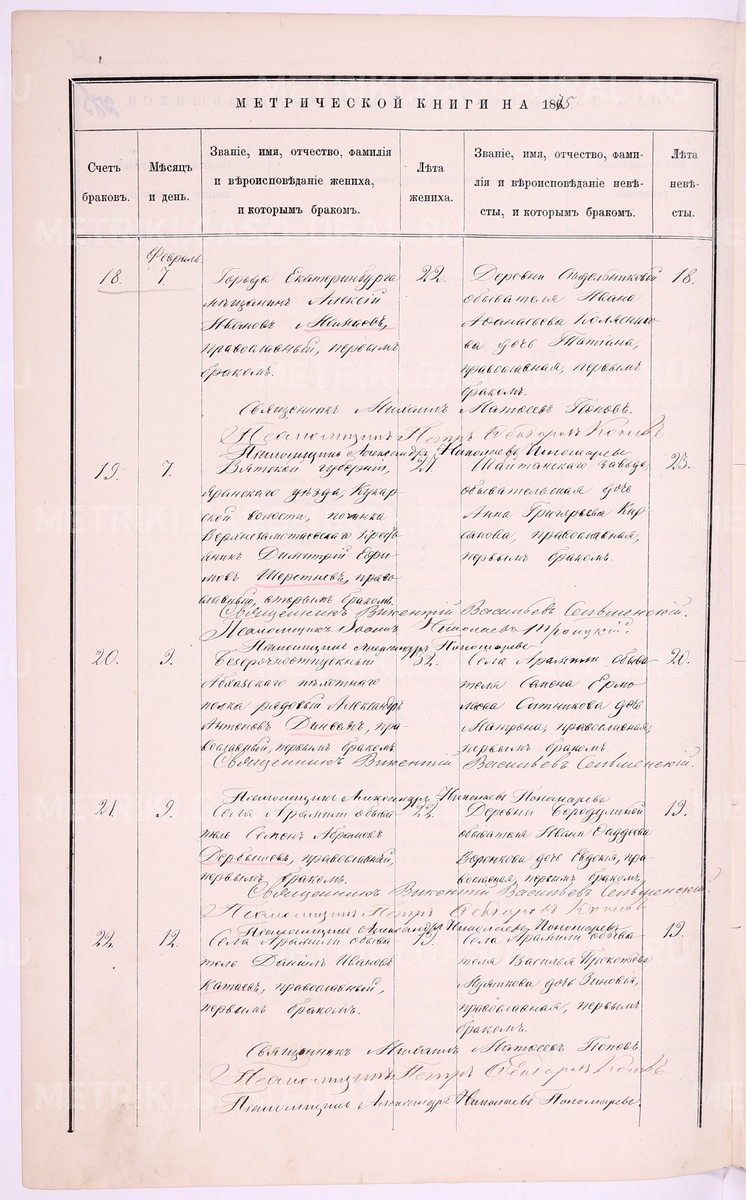 МЕТРИЧЕСКОЙ КНИГИ НА 1885
Счетъ браковъ.
Мѣсяцъ и день.
Званіе, имя, отчество, фамилія
и вѣроисповѣданіе жениха,
и которымъ бракомъ.
Лѣта жениха.
Званіе, имя, отчество, фами-
лія и вѣроисповѣданіе невѣ-
сты, и которымъ бракомъ.
Лѣта невѣ-
сты.
Февраль
18. 7.
Города Екатеринбурга
мѣщанинъ Алексій
Ивановъ
православный, первымъ
бракомъ.
22.
Деревни
обывателя Ивана
Аѳанасьева
ва дочь Татіана,
православная, первымъ
бракомъ.
18.
Священникъ Михаилъ Матѳеевъ Поповъ.
Псаломщикъ Петръ
Псаломщикъ Александръ Николаевъ Пономаревъ
19. 7.
Вятской губерніи,
Яранскаго уѣзда, Кукар-
ской волости, починка
кресть-
янинъ Димитрій Ефи-
мовъ Шерстневъ, право-
славный, вторымъ бракомъ.
Шайтанскаго завода,
обывательская дочь
Анна Григорьева Кир-
сакова, православная,
первымъ бракомъ.
23.
Священникъ Викентій Васильевъ
Псаломщикъ Іоаннъ Николаевъ Троицкій.
Псаломщикъ Александръ Пономаревъ
20. 9.
Безсрочноотпускный
Абхазскаго пѣхотнаго
полка рядовой Александръ
Антоновъ пра-
вославный, первымъ бракомъ
32.
Села Арамили обыва-
теля Самона Ермо-
лаева Ситникова дочь
Матрона, православная,
первымъ бракомъ.
20.
Священникъ Викентій Васильевъ
Псаломщикъ Александръ Николаевъ Пономаревъ
21. 9.
Села Арамили обыва-
тель Семенъ Абрамовъ
Дербышевъ, православный,
первымъ бракомъ.
22.
Деревни
обывателя Ивана
Воронкова дочь Евдокія, пра-
вославная, первымъ бракомъ.
19.
Священникъ Викентій Васильевъ
Псаломщикъ Петръ
Псаломщикъ Александръ Николаевъ Пономаревъ
22. 12.
Села Арамили обыва-
тель Даніилъ Ивановъ
Катаевъ, православный,
первымъ бракомъ.
19.
Села Арамили обыва-
теля Василья Прокопьева
дочь Зиновія,
православная, первымъ
бракомъ.
19.
Священникъ Михаилъ Матѳеевъ Поповъ
Псаломщикъ Петръ
Псаломщикъ Александръ Николаевъ Пономаревъ.